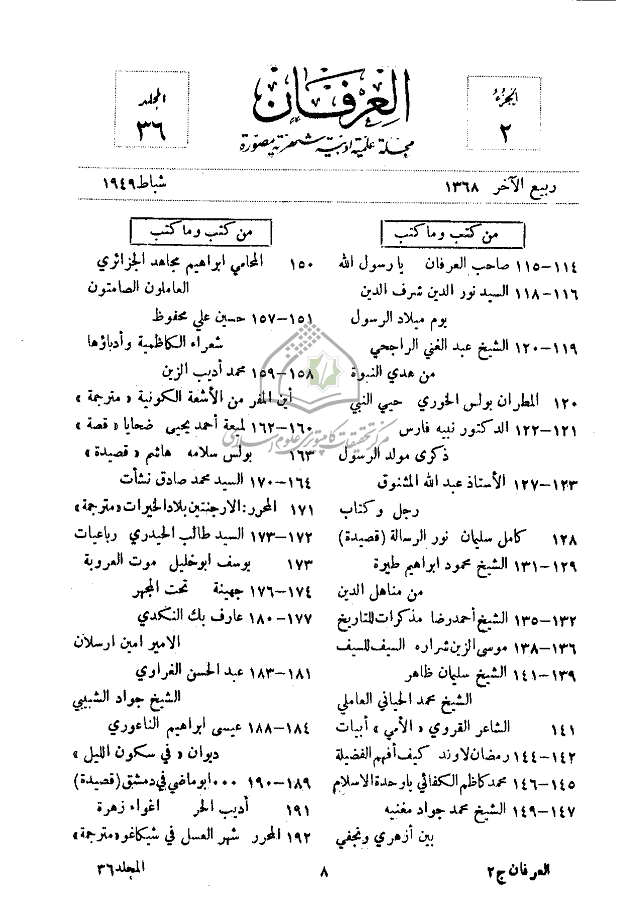 الجزء
٢
العرفان
مجلة علمية ادبية شهرية مصوّرة
المجلد
٣٦
ربيع الآخر ١٣٦٨
شباط ١٩٤٩
من كتب وما كتب
١١٤–١١٥ صاحب العرفان يا رسول الله
١١٦–١١٨ السيد نور الدين شرف الدين
يوم ميلاد الرسول
١١٩–١٢٠ الشيخ عبد الغني الراجحي
من هدي النبوة
١٢٠ المطران بولس الخوري حيي النبي
١٢١–١٢٢ الدكتور نبيه فارس
ذكرى مولد الرسول
١٢٣–١٢٧ الأستاذ عبد الله المشنوق
رجل وكتاب
١٢٨ كامل سليمان نور الرسالة (قصيدة)
١٢٩–١٣١ الشيخ محمود ابراهيم طيرة
من مناهل الدين
١٣٢–١٣٥ الشيخ أحمد رضا مذكرات للتاريخ
١٣٦–١٣٨ موسى الزين شراره السيف للسيف
١٣٩–١٤١ الشيخ سليمان ظاهر
الشيخ محمد الحياني العاملي
١٤١ الشاعر القروي « الأمي » أبيات
١٤٢–١٤٤ رمضان لاوند كيف أفهم الفضيلة
١٤٥–١٤٦ محمد كاظم الكفائي يا وحدة الاسلام
١٤٧–١٤٩ الشيخ محمد جواد مغنيه
بين أزهري ونجفي
من كتب وما كتب
١٥٠ المحامي ابراهيم مجاهد الجزائري
العاملون الصامتون
١٥١–١٥٧ حسين علي محفوظ
شعراء الكاظمية وأدباؤها
١٥٨–١٥٩ محمد أديب الزين
أين المفر من الأشعة الكونية « مترجمة »
١٦٠–١٦٢ لميعة أحمد يحيى ضحايا « قصة »
١٦٣ بولس سلامه هاشم « قصيدة »
١٦٤–١٧٠ السيد محمد صادق نشأت
١٧١ المحرر: الارجنتين بلاد الخيرات «مترجمة»
١٧٢–١٧٣ السيد طالب الحيدري رباعيات
١٧٣ يوسف ابو خليل موت العروبة
١٧٤–١٧٦ جهينة تحت المجهر
١٧٧–١٨٠ عارف بك النكدي
الامير امين ارسلان
١٨١–١٨٣ عبد الحسن الغراوي
الشيخ جواد الشبيبي
١٨٤–١٨٨ عيسى ابراهيم الناعوري
ديوان « في سكون الليل »
١٨٩–١٩٠ ٠٠٠ ابو ماضي في دمشق (قصيدة)
١٩١ أديب الحر اغواء زهرة
١٩٢ المحرر شهر العسل في شيكاغو «مترجمة»
مركز تحقيقات كامپيوترى علوم اسلامى
العرفان ج ٢
٨
المجلد ٣٦